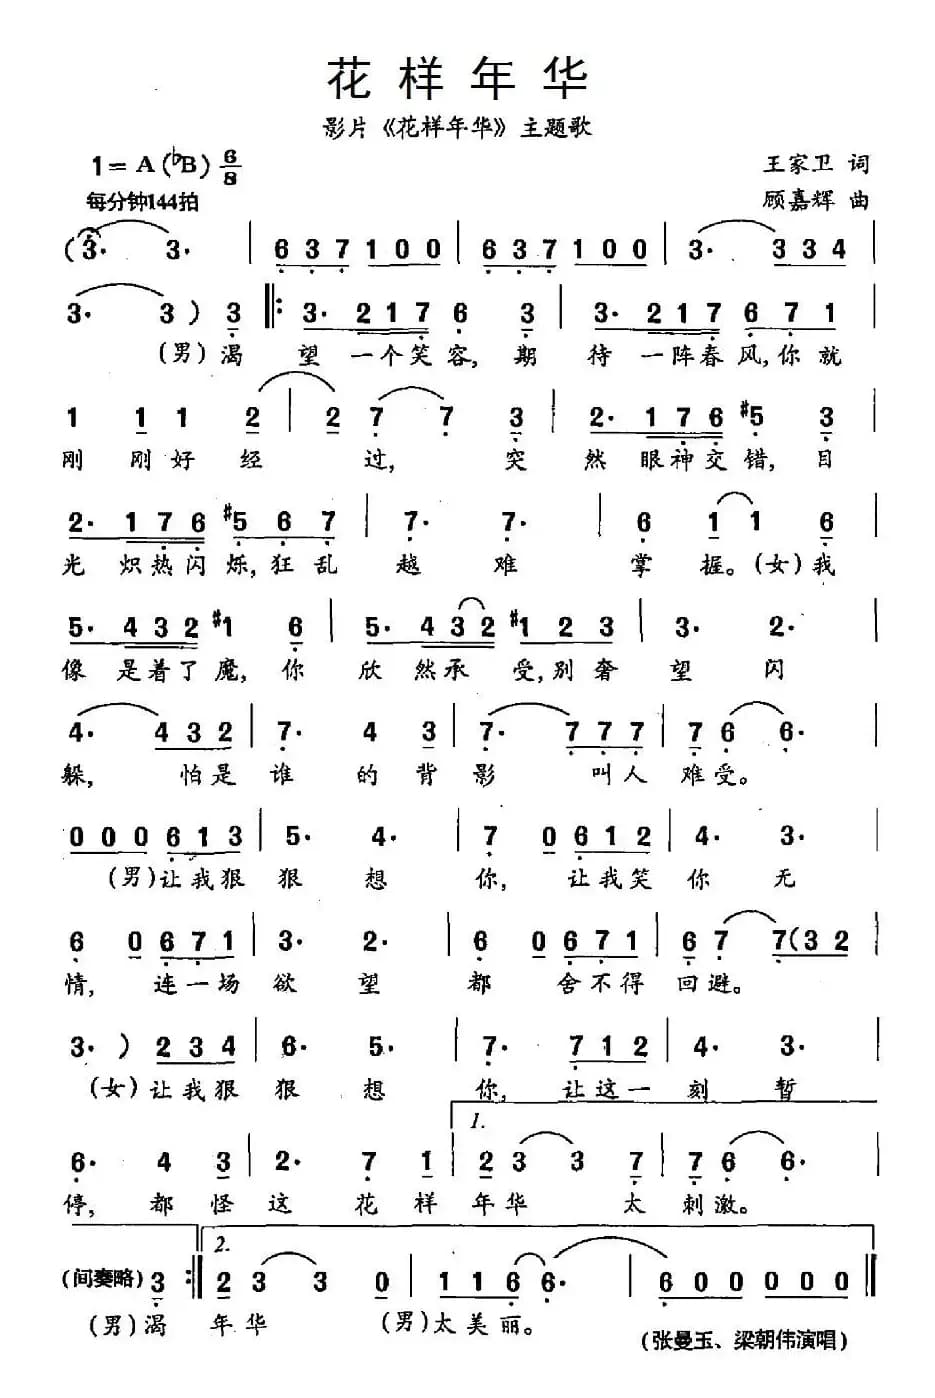 花样年华
影片《花样年华》主题歌
1=A(♭B) 6/8
王家卫 词
每分钟144拍
顾嘉辉 曲
(3· 3· | 637 100 | 637 100 | 3· 334 |
3· 3) 3 ‖: 3· 2176 3 | 3· 2176 7 1
(男)渴 望 一个笑容, 期 待 一阵春风,你就
1 1 1 2 | 2 7 7 3 | 2· 176 #5 3
刚 刚好 经 过, 突 然 眼神交错, 目
2· 176 #5 6 7 | 7· 7· | 6 1 1 6
光 炽热闪 烁,狂乱 越 难 掌 握。(女)我
5· 432 #1 6 | 5· 432 #1 2 3 | 3· 2·
像 是着了魔,你 欣 然承 受,别奢 望 闪
4· 432 | 7· 4 3 | 7· 777 | 7 6 6·
躲, 怕是 谁 的 背 影 叫人 难受。
000 613 | 5· 4· | 7 0 612 | 4· 3·
(男)让我狠 狠 想 你, 让我笑 你 无
6 0 671 | 3· 2· | 6 0 671 | 6 7 7(32
情, 连一场 欲 望 都 舍不得 回避。
3·) 234 | 6· 5· | 7· 712 | 4· 3·
(女)让我狠 狠 想 你, 让这一 刻 暂
1.
6· 4 3 | 2· 7 1 | 2 3 3 7 | 7 6 6·
停, 都 怪 这 花 样 年华 太 刺激。
2.
(间奏略) 3 :‖ 2 3 3 0 | 1 1 6 6· | 600000 ‖
(男)渴 年华 (男)太美丽。
(张曼玉、梁朝伟演唱)